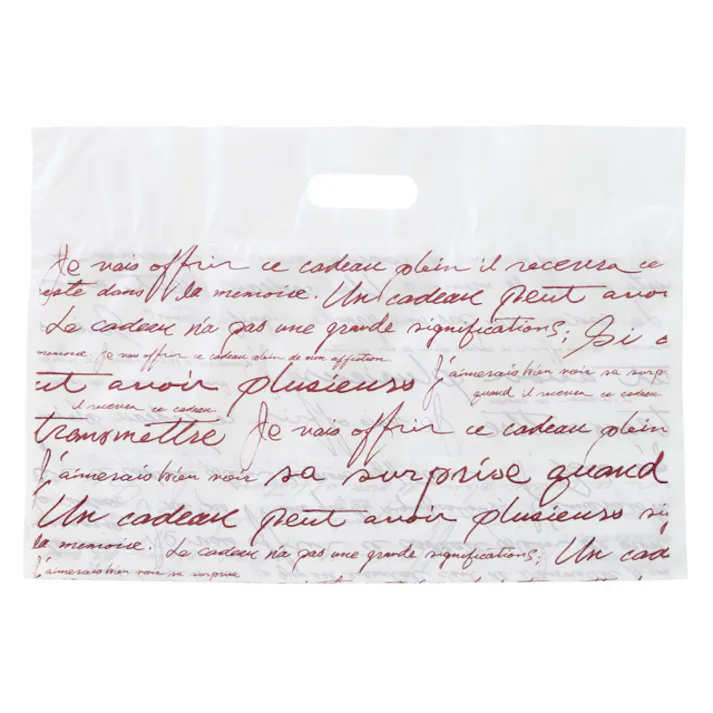 Je vais offrir ce cadeau plein il recevra ce
reste dans la memoire. Un cadeau peut avoi
Le cadeau n'a pas une grande significations; Si c
memoire. Je vais offrir ce cadeau plein de mon affection
ut avoir plusieurs J'aimerais bien voir sa surp.
quand il recevra ce cadeau.
il recevra ce cadeau.
transmettre Je vais offrir ce cadeau plein
J'aimerais bien voir sa surprise quand
Un cadeau peut avoir plusieurs sig
la memoire. Le cadeau n'a pas une grande significations; Un cad
J'aimerais bien voir sa surprise